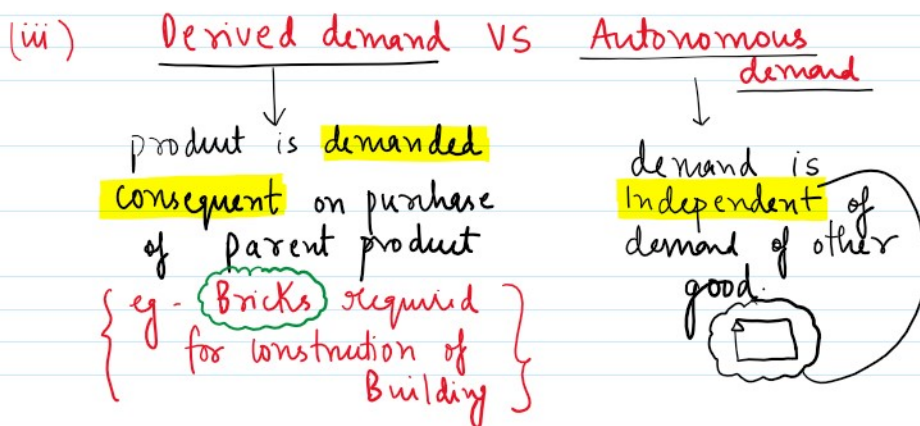 (iii) Derived demand VS Autonomous
demand
product is demanded
consequent on purchase
of parent product
{ eg - Bricks required
for construction of
Building }
demand is
Independent of
demand of other
good.